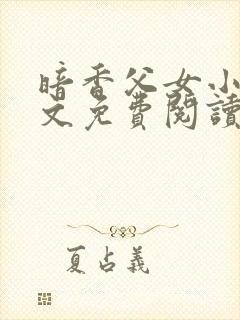 暗香父女小
文免費閱讀
夏占義